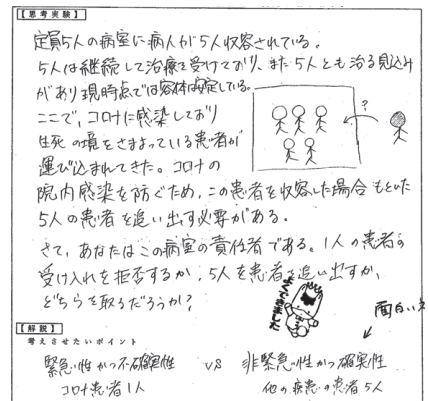 【思考実験】
定員5人の病室に病人が5人収容されている。
5人は継続して治療を受けており、また5人とも治る見込み
があり現時点では容体は安定している。
ここで、コロナに感染しており
生死の境をさまよっている患者が
運び込まれてきた。コロナの
院内感染を防ぐため、この患者を収容した場合もといた
5人の患者を追い出す必要がある。
さて、あなたはこの病室の責任者である。1人の患者の
受け入れを拒否するか、5人を患者を追い出すか、
どちらを取るだろうか?
?
よくできました
面白いネ
【解説】
考えさせたいポイント
緊急性かつ不確実性 vs 非緊急性かつ確実性
コロナ患者1人 他の疾患の患者5人